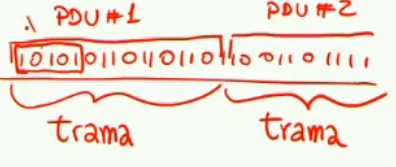 PDU #1 PDU #2
10101011011010110 10 0110 11111
trama trama